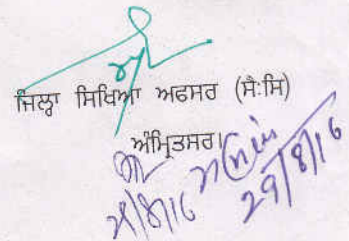 ਜਿਲ੍ਹਾ ਸਿਖਿਆ ਅਫਸਰ (ਸੈ:ਸਿ)
ਅੰਮ੍ਰਿਤਸਰ।
29/8/16